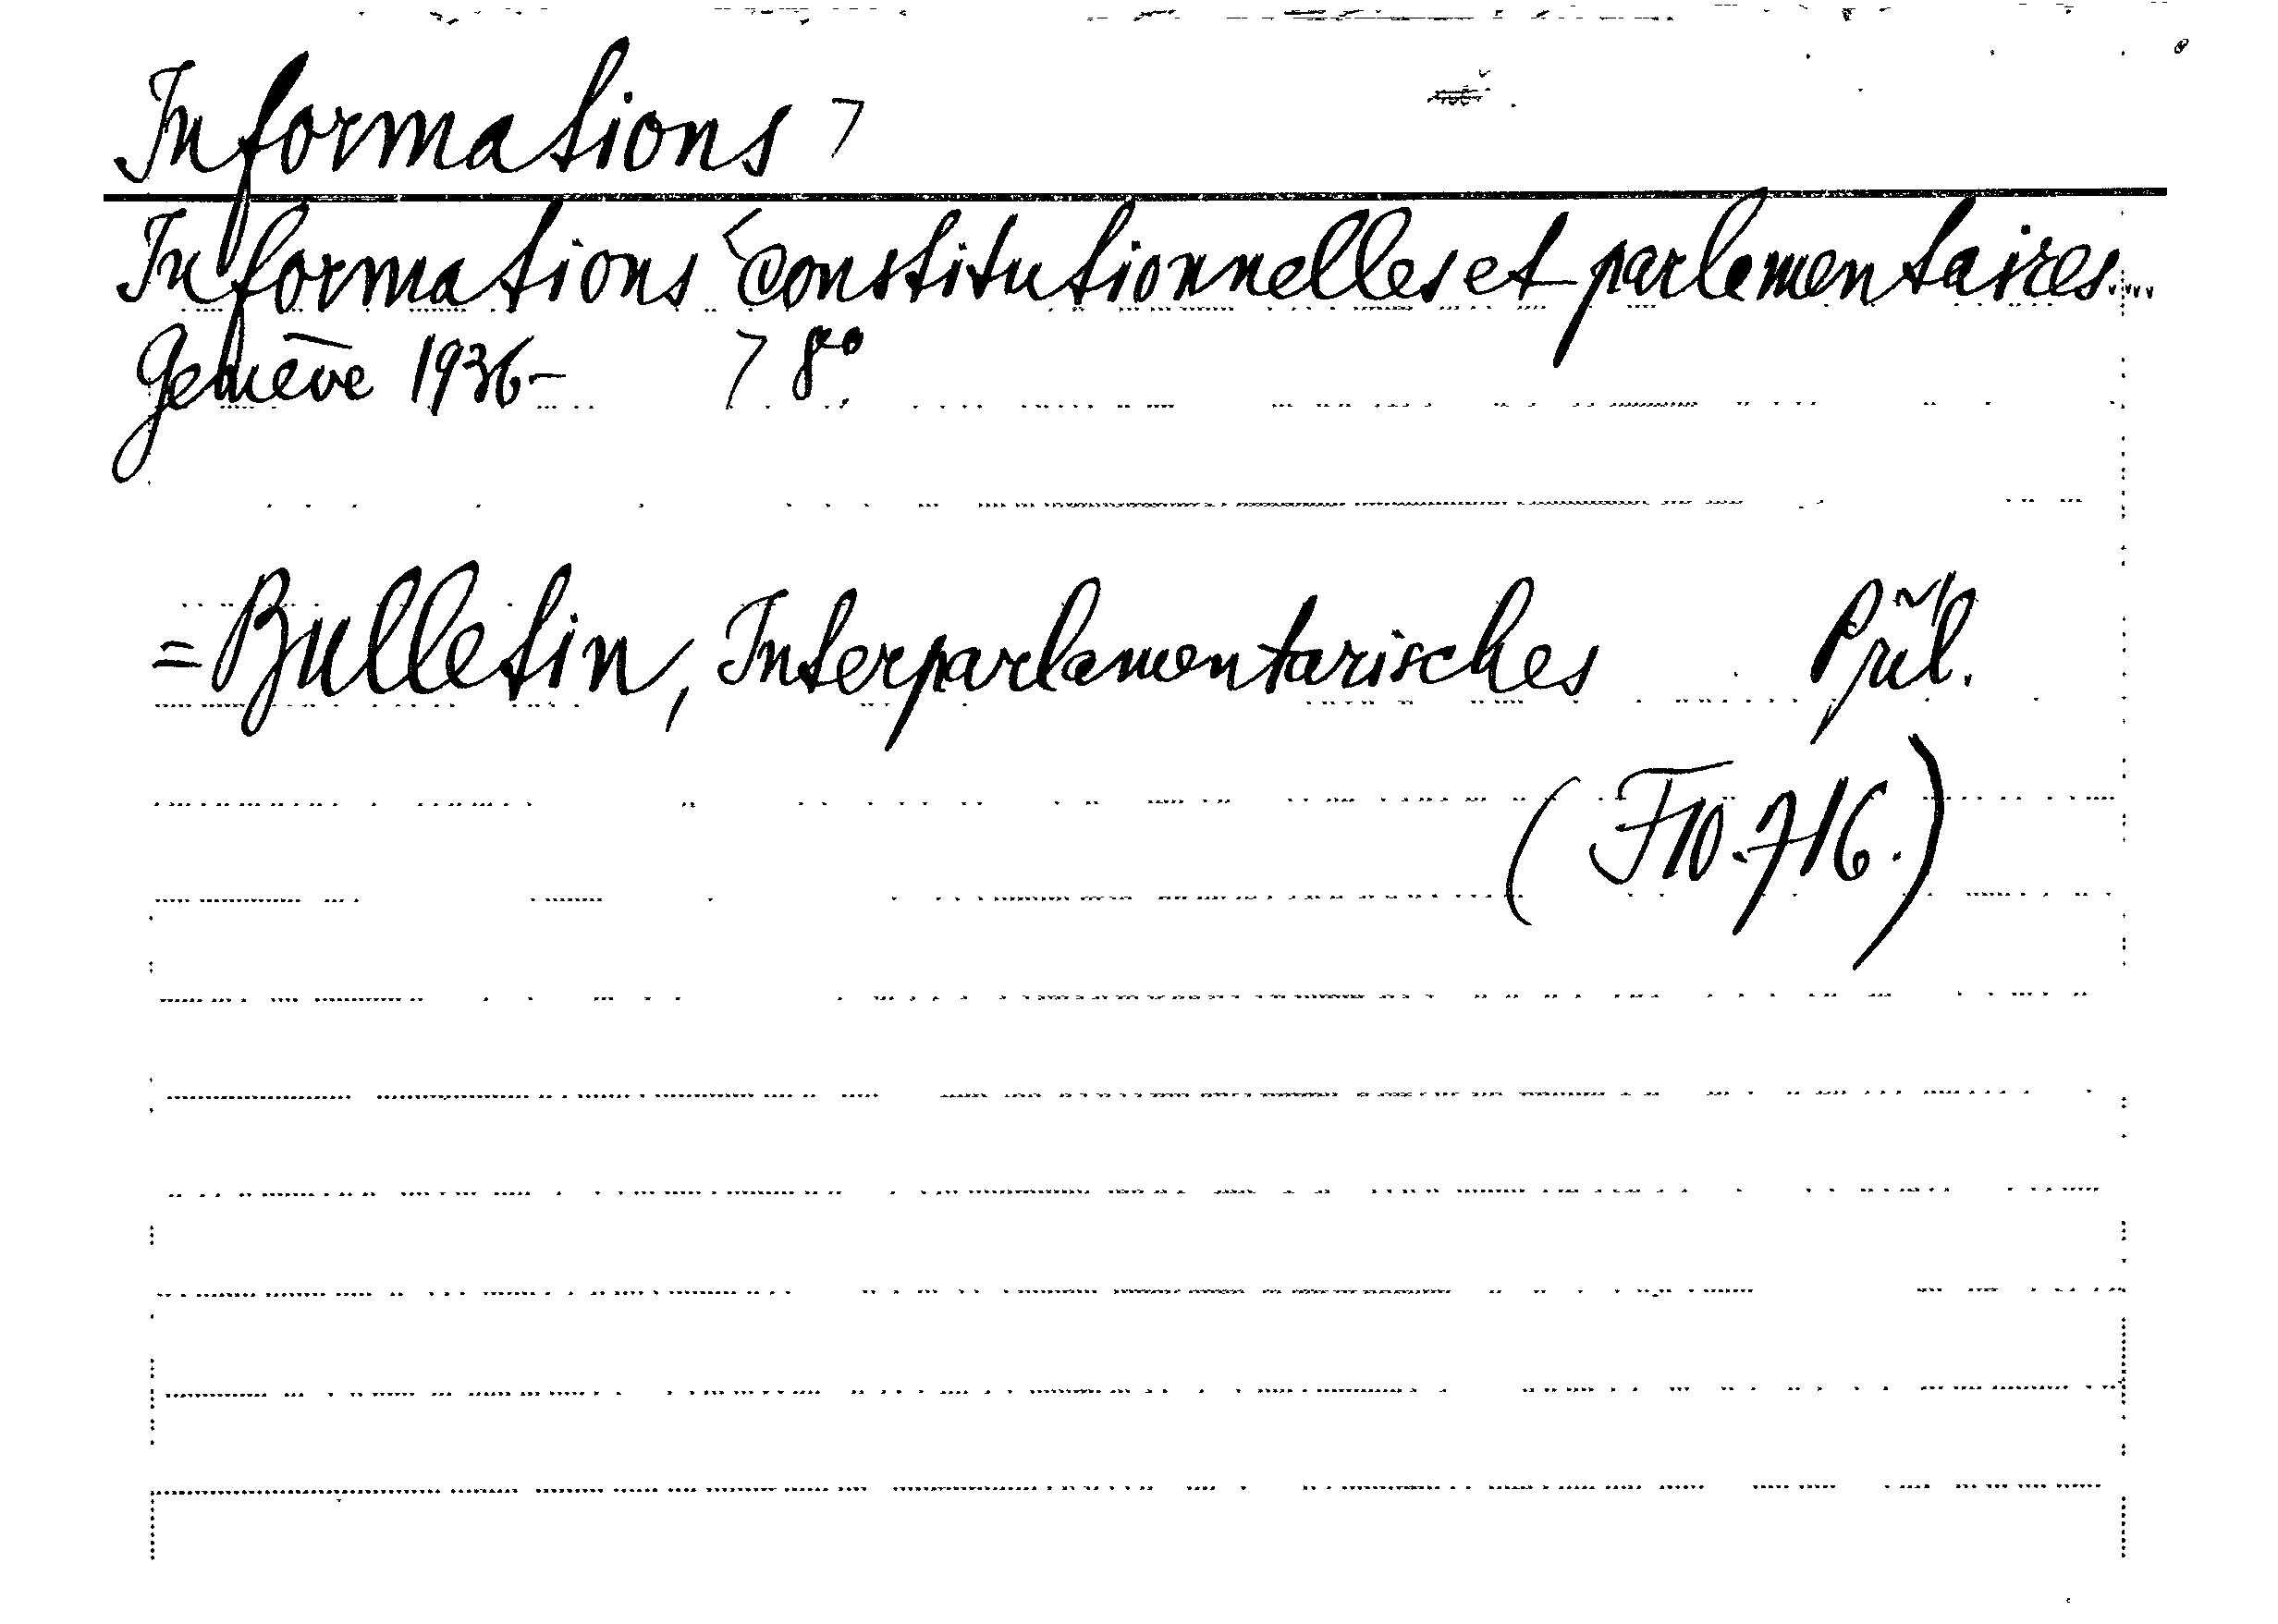 Informations >
Informations <constitutionnelles et parlementaires...
Genève 1936- > 8°
= Bulletin, Interparlamentarisches
(F10.716.)